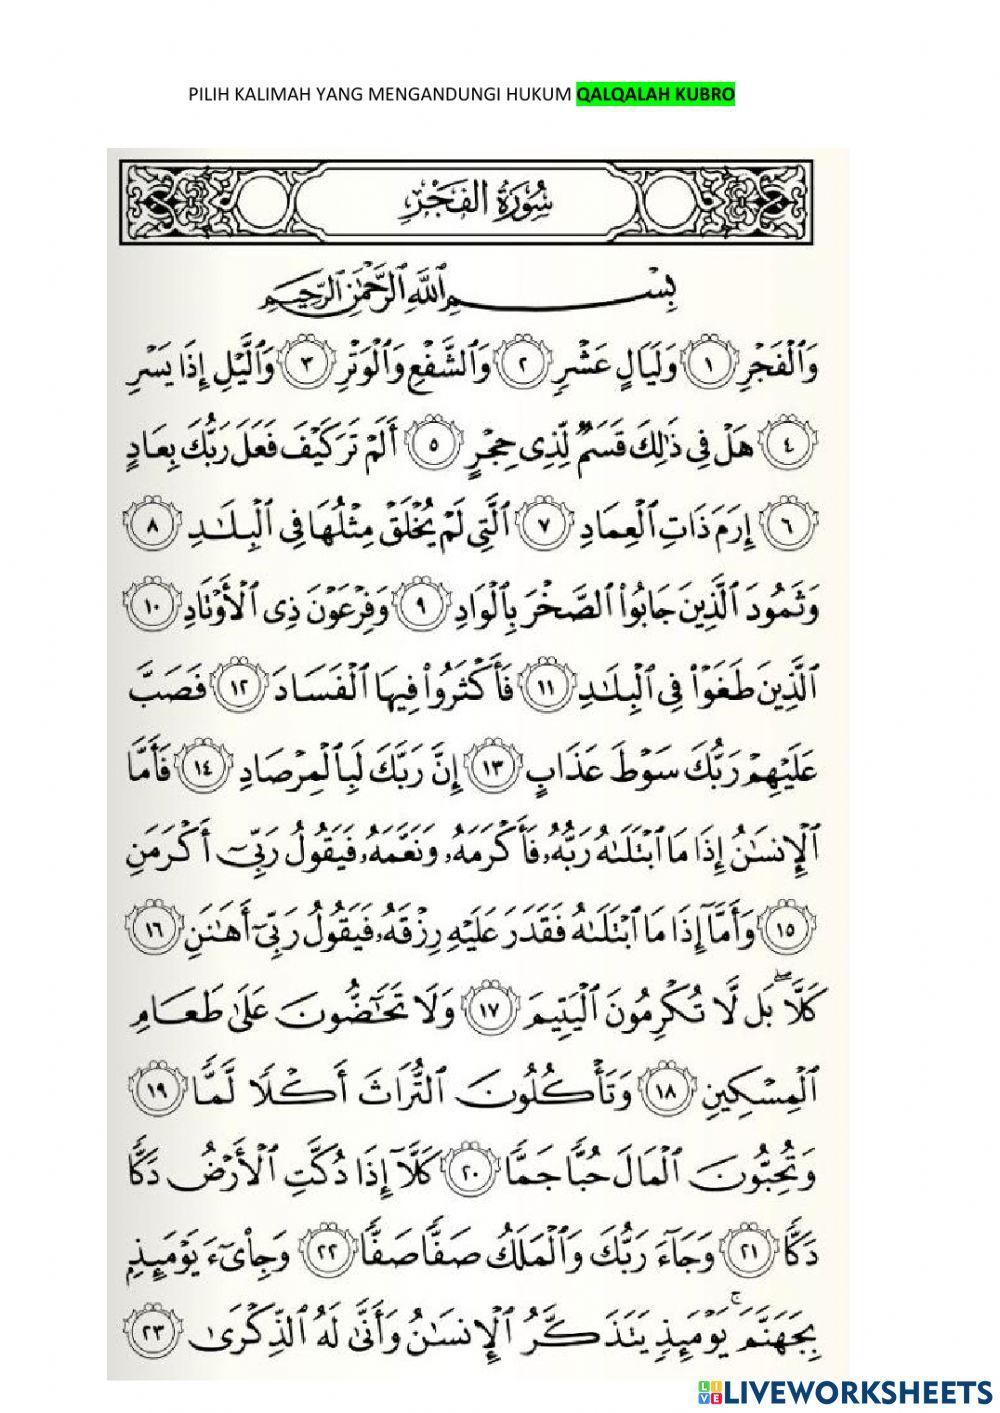 PILIH KALIMAH YANG MENGANDUNGI HUKUM QALQALAH KUBRO
سُورَةُ الفَجْرِ
بِسْمِ ٱللَّهِ ٱلرَّحْمَٰنِ ٱلرَّحِيمِ
وَٱلْفَجْرِ ١ وَلَيَالٍ عَشْرٍ ٢ وَٱلشَّفْعِ وَٱلْوَتْرِ ٣ وَٱلَّيْلِ إِذَا يَسْرِ
٤ هَلْ فِي ذَٰلِكَ قَسَمٌ لِّذِى حِجْرٍ ٥ أَلَمْ تَرَ كَيْفَ فَعَلَ رَبُّكَ بِعَادٍ
٦ إِرَمَ ذَاتِ ٱلْعِمَادِ ٧ ٱلَّتِي لَمْ يُخْلَقْ مِثْلُهَا فِي ٱلْبِلَٰدِ ٨
وَثَمُودَ ٱلَّذِينَ جَابُوا۟ ٱلصَّخْرَ بِٱلْوَادِ ٩ وَفِرْعَوْنَ ذِى ٱلْأَوْتَادِ ١٠
ٱلَّذِينَ طَغَوْا۟ فِي ٱلْبِلَٰدِ ١١ فَأَكْثَرُوا۟ فِيهَا ٱلْفَسَادَ ١٢ فَصَبَّ
عَلَيْهِمْ رَبُّكَ سَوْطَ عَذَابٍ ١٣ إِنَّ رَبَّكَ لَبِٱلْمِرْصَادِ ١٤ فَأَمَّا
ٱلْإِنسَٰنُ إِذَا مَا ٱبْتَلَىٰهُ رَبُّهُۥ فَأَكْرَمَهُۥ وَنَعَّمَهُۥ فَيَقُولُ رَبِّىٓ أَكْرَمَنِ
١٥ وَأَمَّآ إِذَا مَا ٱبْتَلَىٰهُ فَقَدَرَ عَلَيْهِ رِزْقَهُۥ فَيَقُولُ رَبِّىٓ أَهَٰنَنِ ١٦
كَلَّا ۖ بَل لَّا تُكْرِمُونَ ٱلْيَتِيمَ ١٧ وَلَا تَحَٰٓضُّونَ عَلَىٰ طَعَامِ
ٱلْمِسْكِينِ ١٨ وَتَأْكُلُونَ ٱلتُّرَاثَ أَكْلًا لَّمًّا ١٩
وَتُحِبُّونَ ٱلْمَالَ حُبًّا جَمًّا ٢٠ كَلَّآ إِذَا دُكَّتِ ٱلْأَرْضُ دَكًّا
دَكًّا ٢١ وَجَآءَ رَبُّكَ وَٱلْمَلَكُ صَفًّا صَفًّا ٢٢ وَجِا۟ىٓءَ يَوْمَئِذٍۭ
بِجَهَنَّمَ ۚ يَوْمَئِذٍ يَتَذَكَّرُ ٱلْإِنسَٰنُ وَأَنَّىٰ لَهُ ٱلذِّكْرَىٰ ٢٣
LIVE LIVEWORKSHEETS